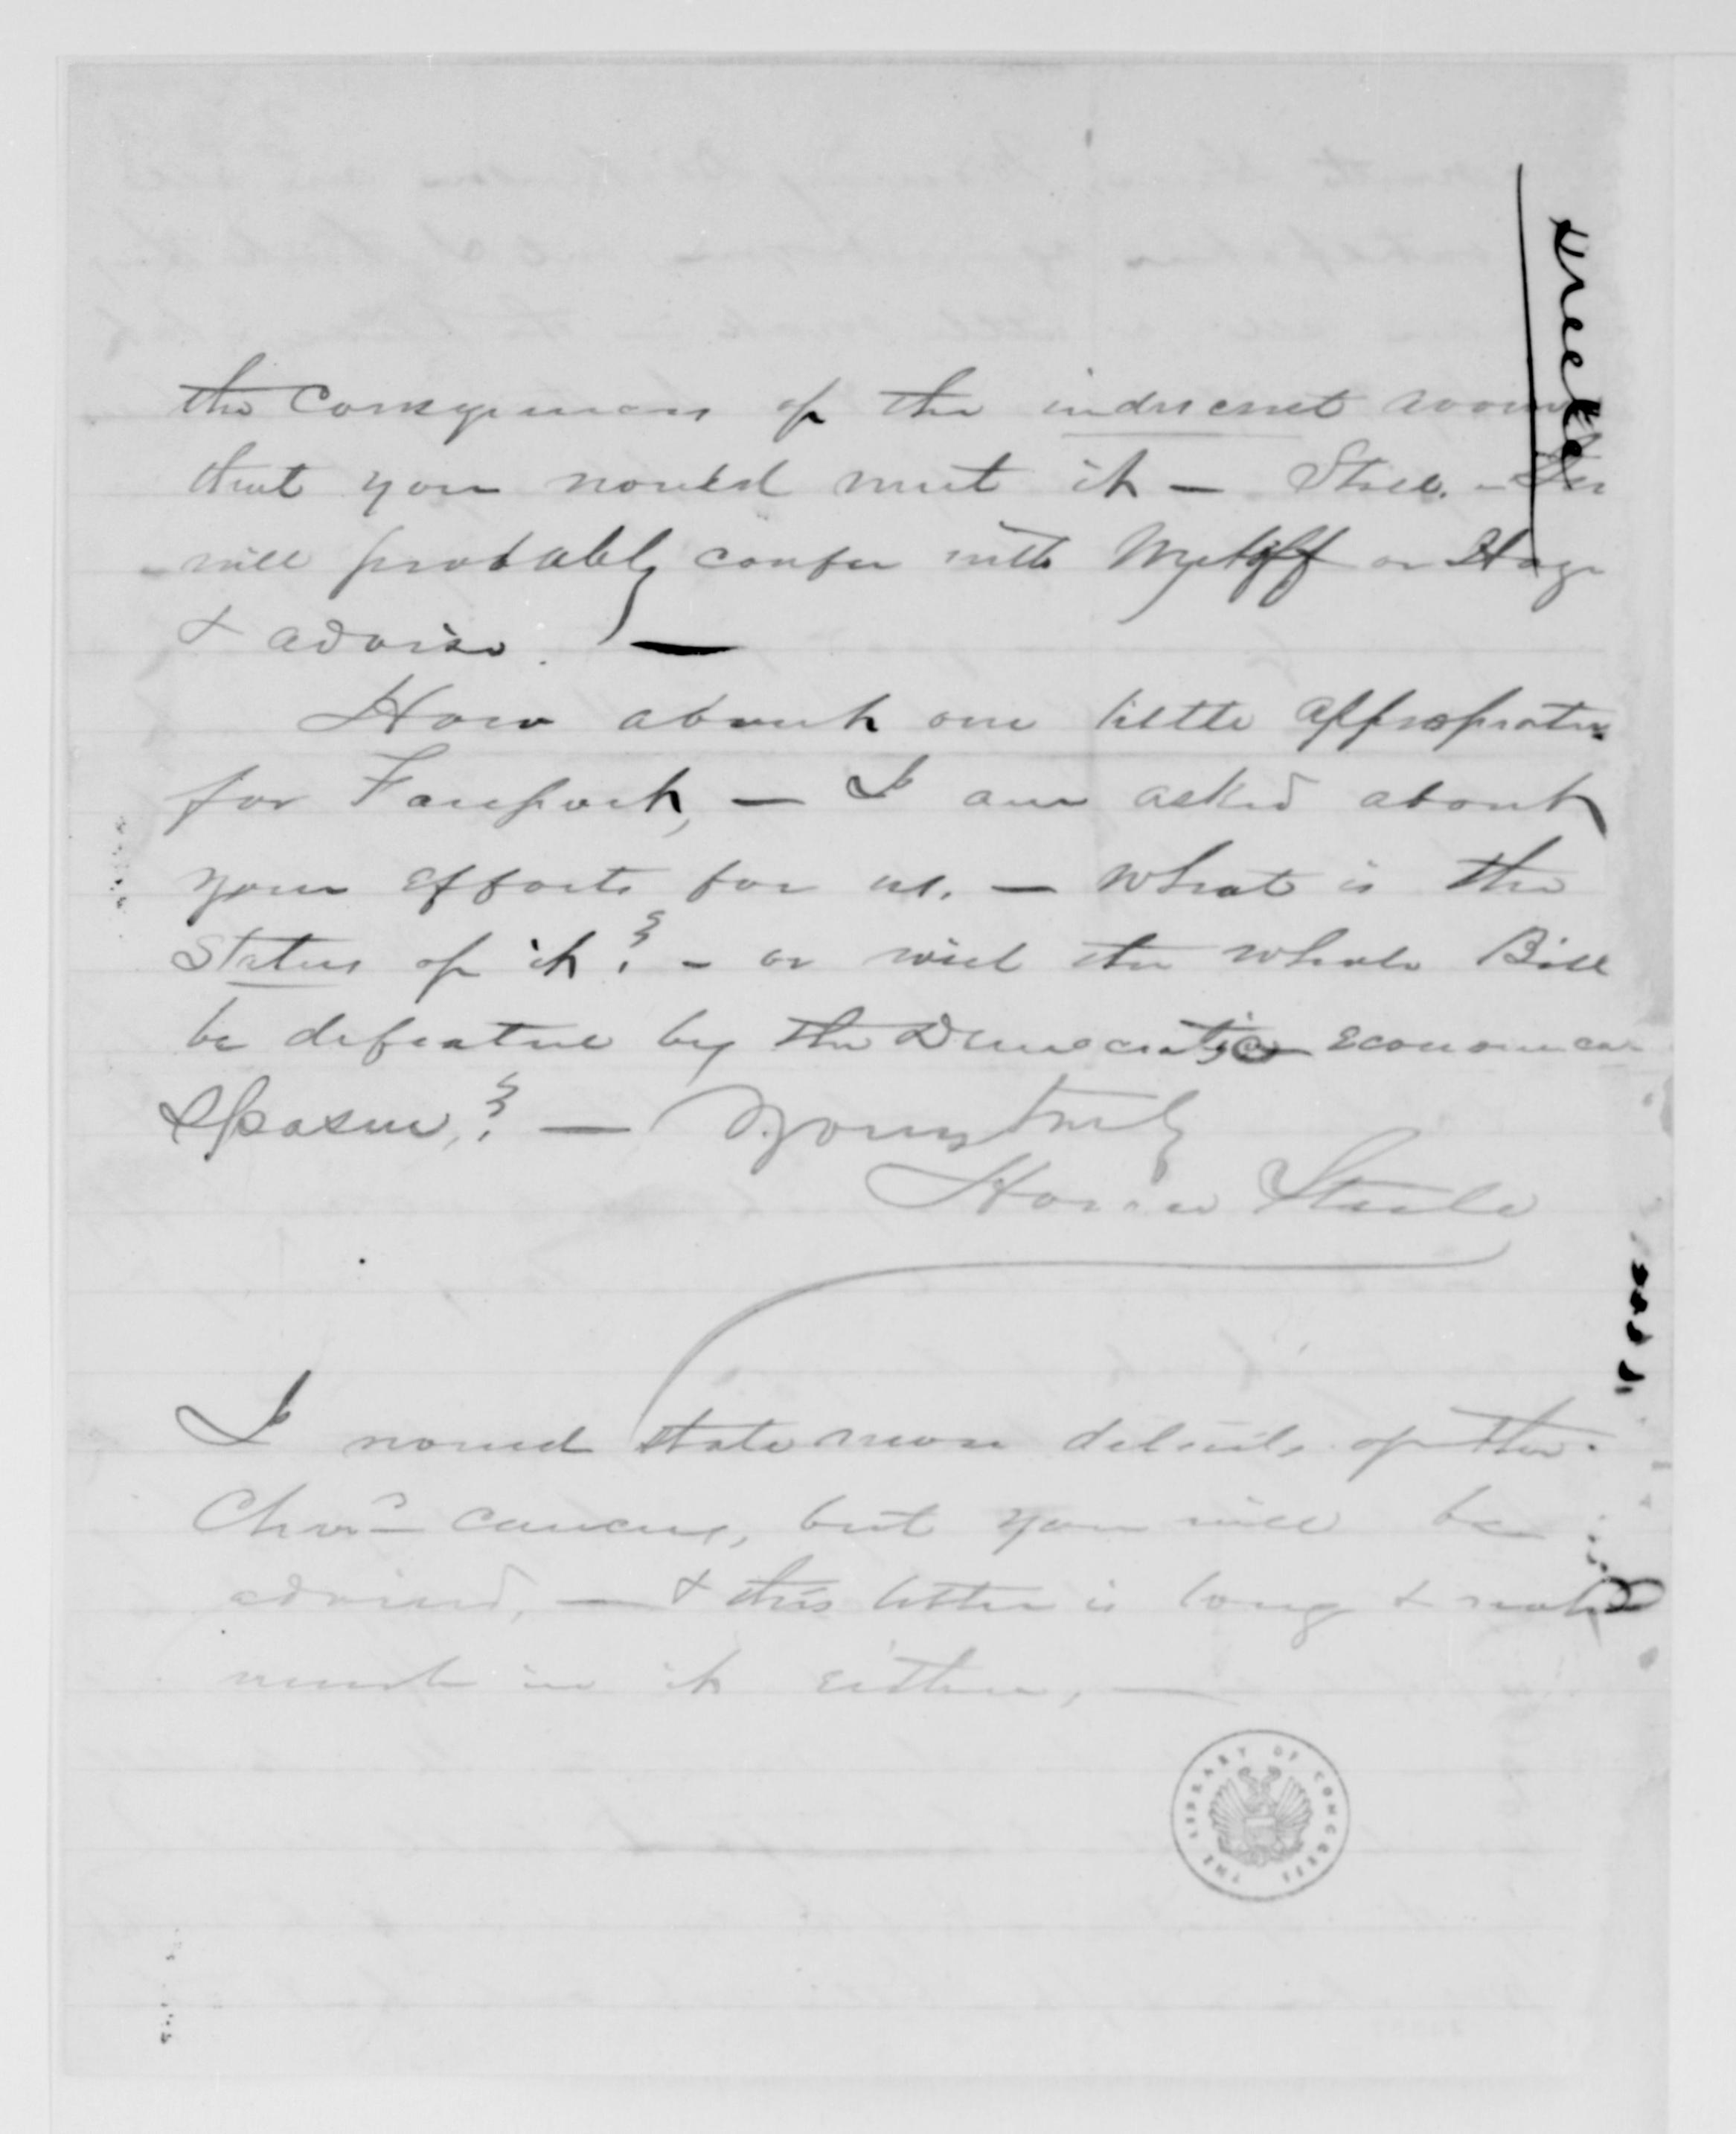 the consequences of the indiscreet avowal
that you would meet it — Still. –
will probably confer with Wyckoff or
& advise. —
How about our little appropriation
for Fairport, — I am asked about
your efforts for us. — What is the
status of it? – or will the whole Bill
be defeated by the Democratic economical
spasm,? — Yours truly
Horace Steele
I would state more details of the
caucus, but you will be
advised, — & this letter is long & not
much in it either, —
THE LIBRARY OF CONGRESS